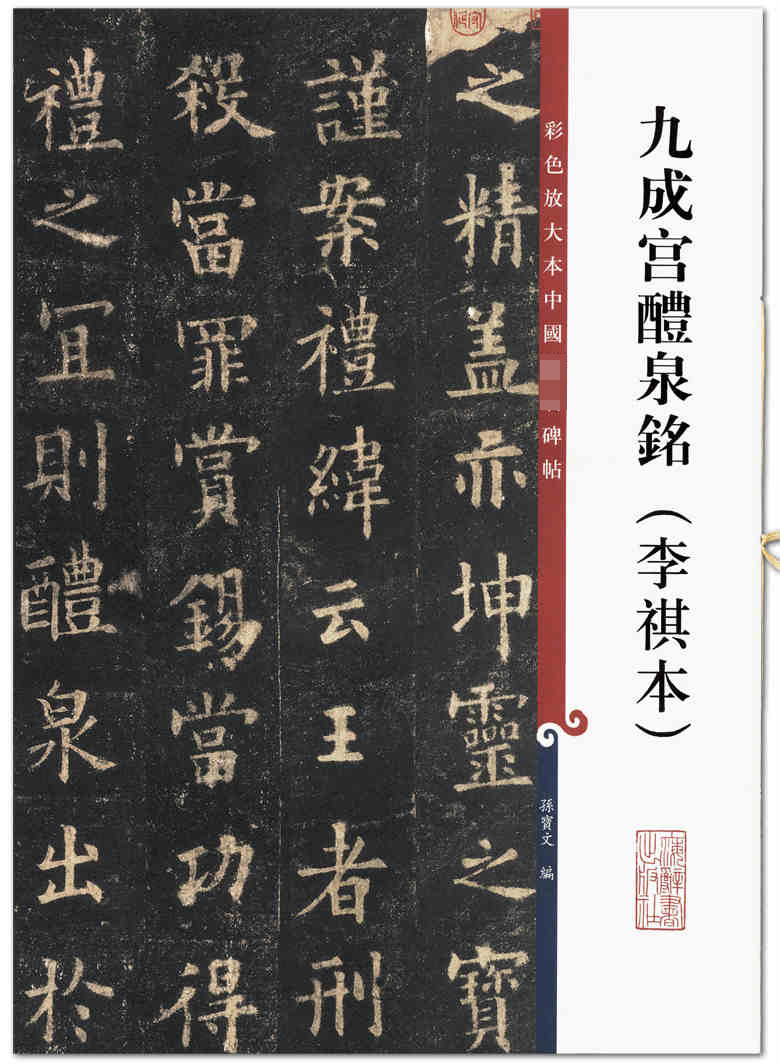 之精蓋亦坤靈之寶
謹案禮緯云王者刑
殺當罪賞錫當功得
禮之宜則醴泉出於
彩色放大本中國
碑帖
孫寶文 編
九成宮醴泉銘（李祺本）
海辭書
出版社